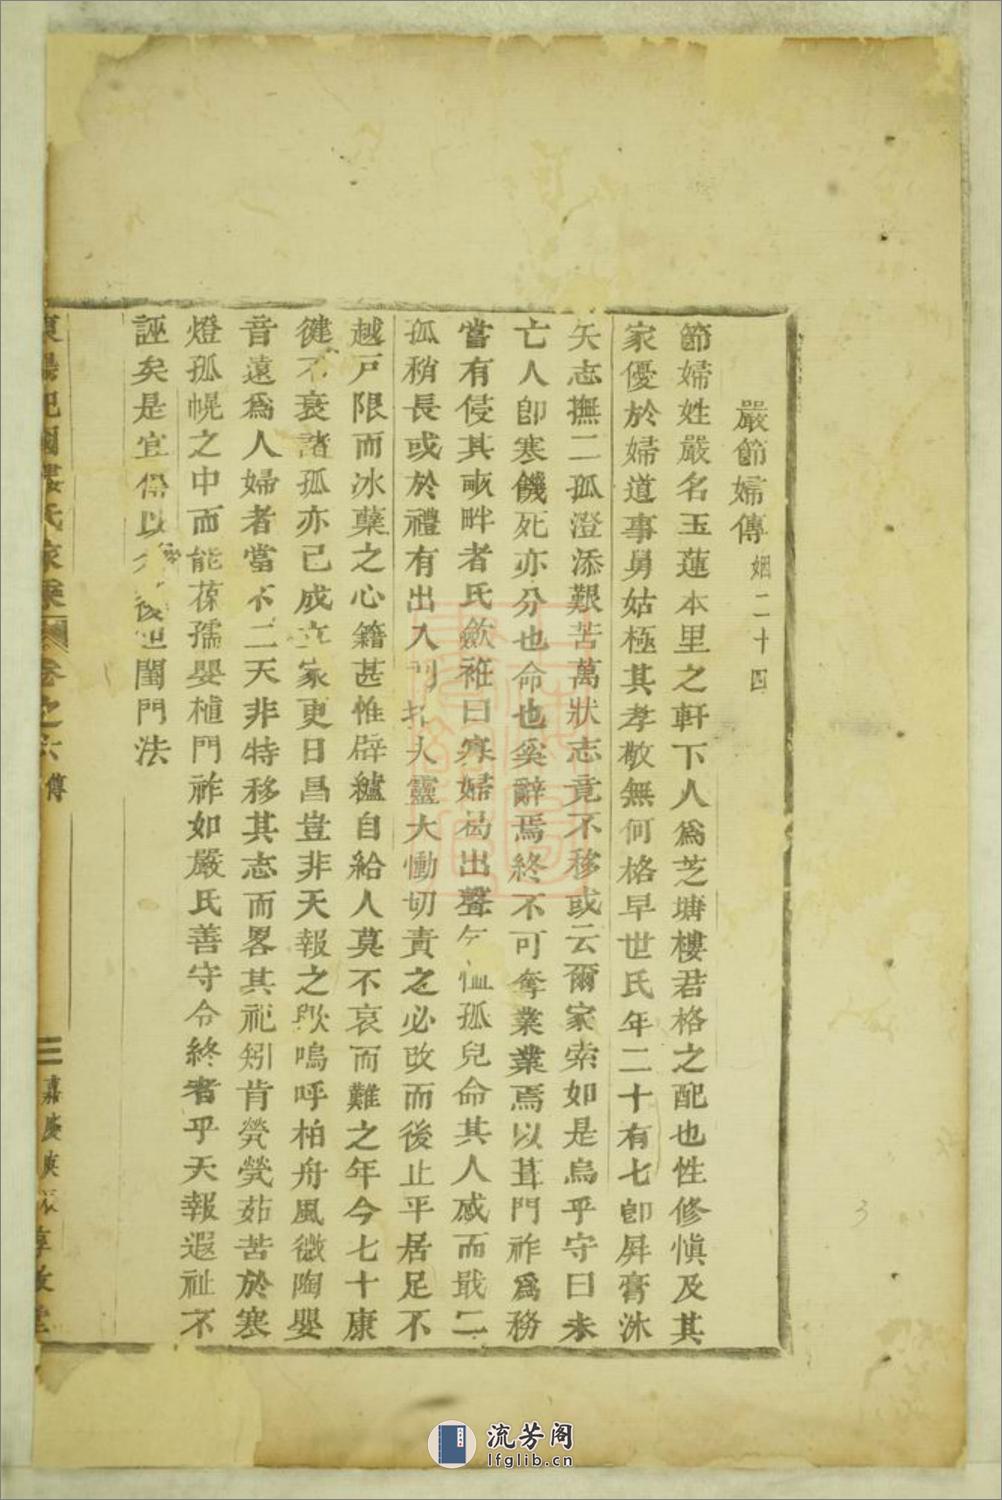 嚴節婦傳 姻二十四
節婦姓嚴名玉蓮本里之軒下人爲芝塘樓君格之配也性修愼及其
家優於婦道事舅姑極其孝敬無何格早世氏年二十有七卽屛膏沐
矢志撫二孤澄添艱苦萬狀志竟不移或云爾家索如是烏乎守曰未
亡人卽寒饑死亦分也命也奚辭焉終不可奪業業焉以葺門祚爲務
嘗有侵其畞畔者氏歛袵曰寡婦曷出聲 恤孤兒命其人感而戢二
孤稍長或於禮有出入 夫靈大慟切責之必改而後止平居足不
越戸限而冰蘗之心籍甚惟辟纑自給人莫不哀而難之年今七十康
徤不衰諸孤亦已成立家更日昌豈非天報之歟嗚呼柏舟風微陶嬰
音遠爲人婦者當不二天非特移其志而畧其祀矧肯煢煢茹苦於寒
燈孤幌之中而能葆孺嬰植門祚如嚴氏善守令終者乎天報遐祉不
誣矣是宜傳以 後世閨門法
東陽杞國樓氏家乘 卷之六 傳
三 嘉慶庚 惇敘堂
流芳阁
lfglib.cn